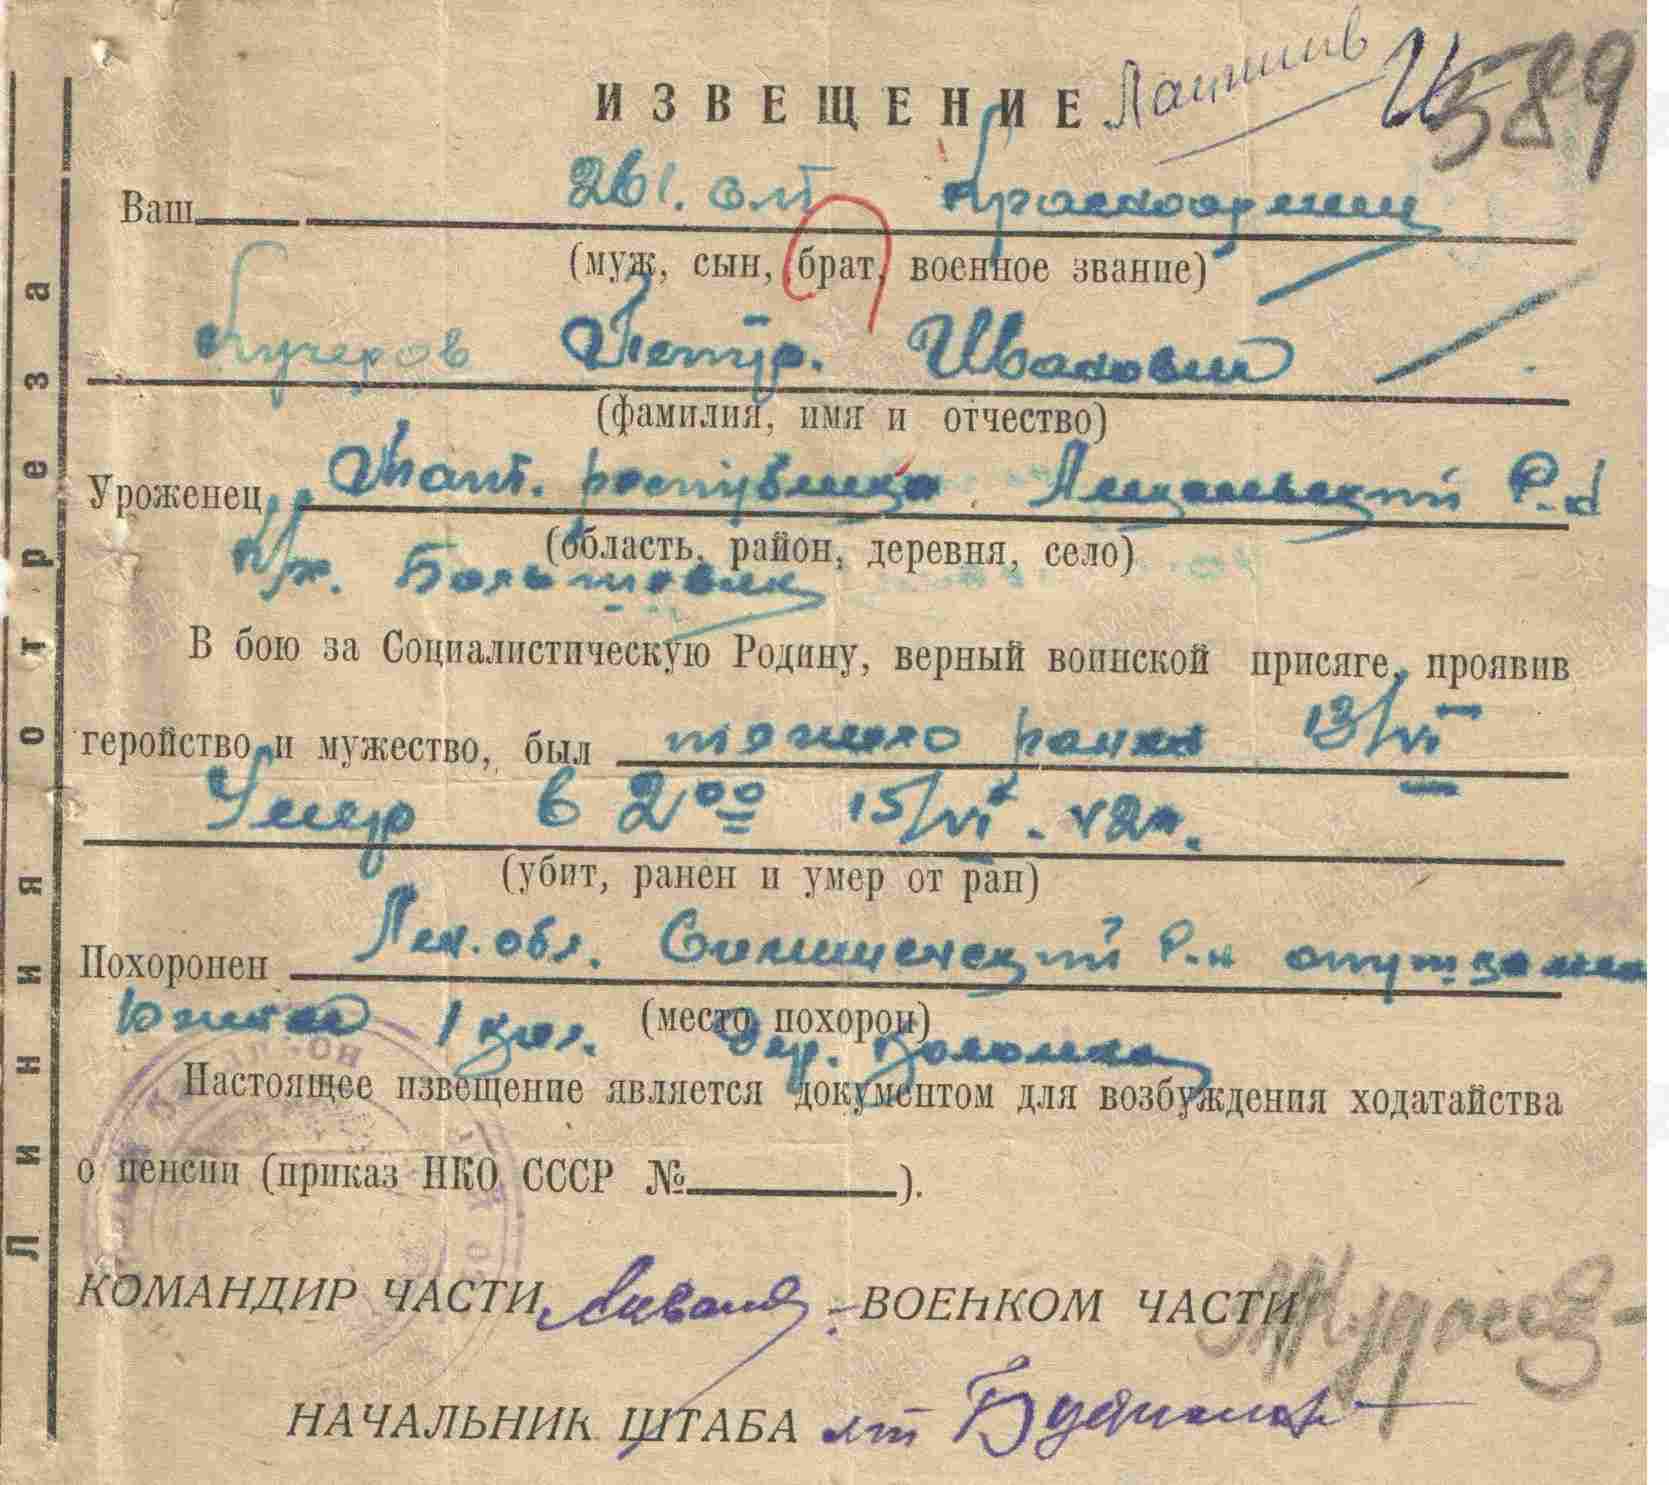 ИЗВЕЩЕНИЕ Лаишив 589
Ваш 261. олт Красноармеец
(муж, сын, брат, военное звание)
Кучеров Петр. Иванович
(фамилия, имя и отчество)
Уроженец Тат. республика р-н
(область, район, деревня, село)
Большовик
В бою за Социалистическую Родину, верный воинской присяге, проявив
геройство и мужество, был тяжело ранен 13/VI
Умер в 2 00 15/VI-42г.
(убит, ранен и умер от ран)
Похоронен Лен. обл. р-н
(место похорон)
1 дер.
Настоящее извещение является документом для возбуждения ходатайства
о пенсии (приказ НКО СССР № ).
КОМАНДИР ЧАСТИ ВОЕНКОМ ЧАСТИ
НАЧАЛЬНИК ШТАБА лт
Линия отреза